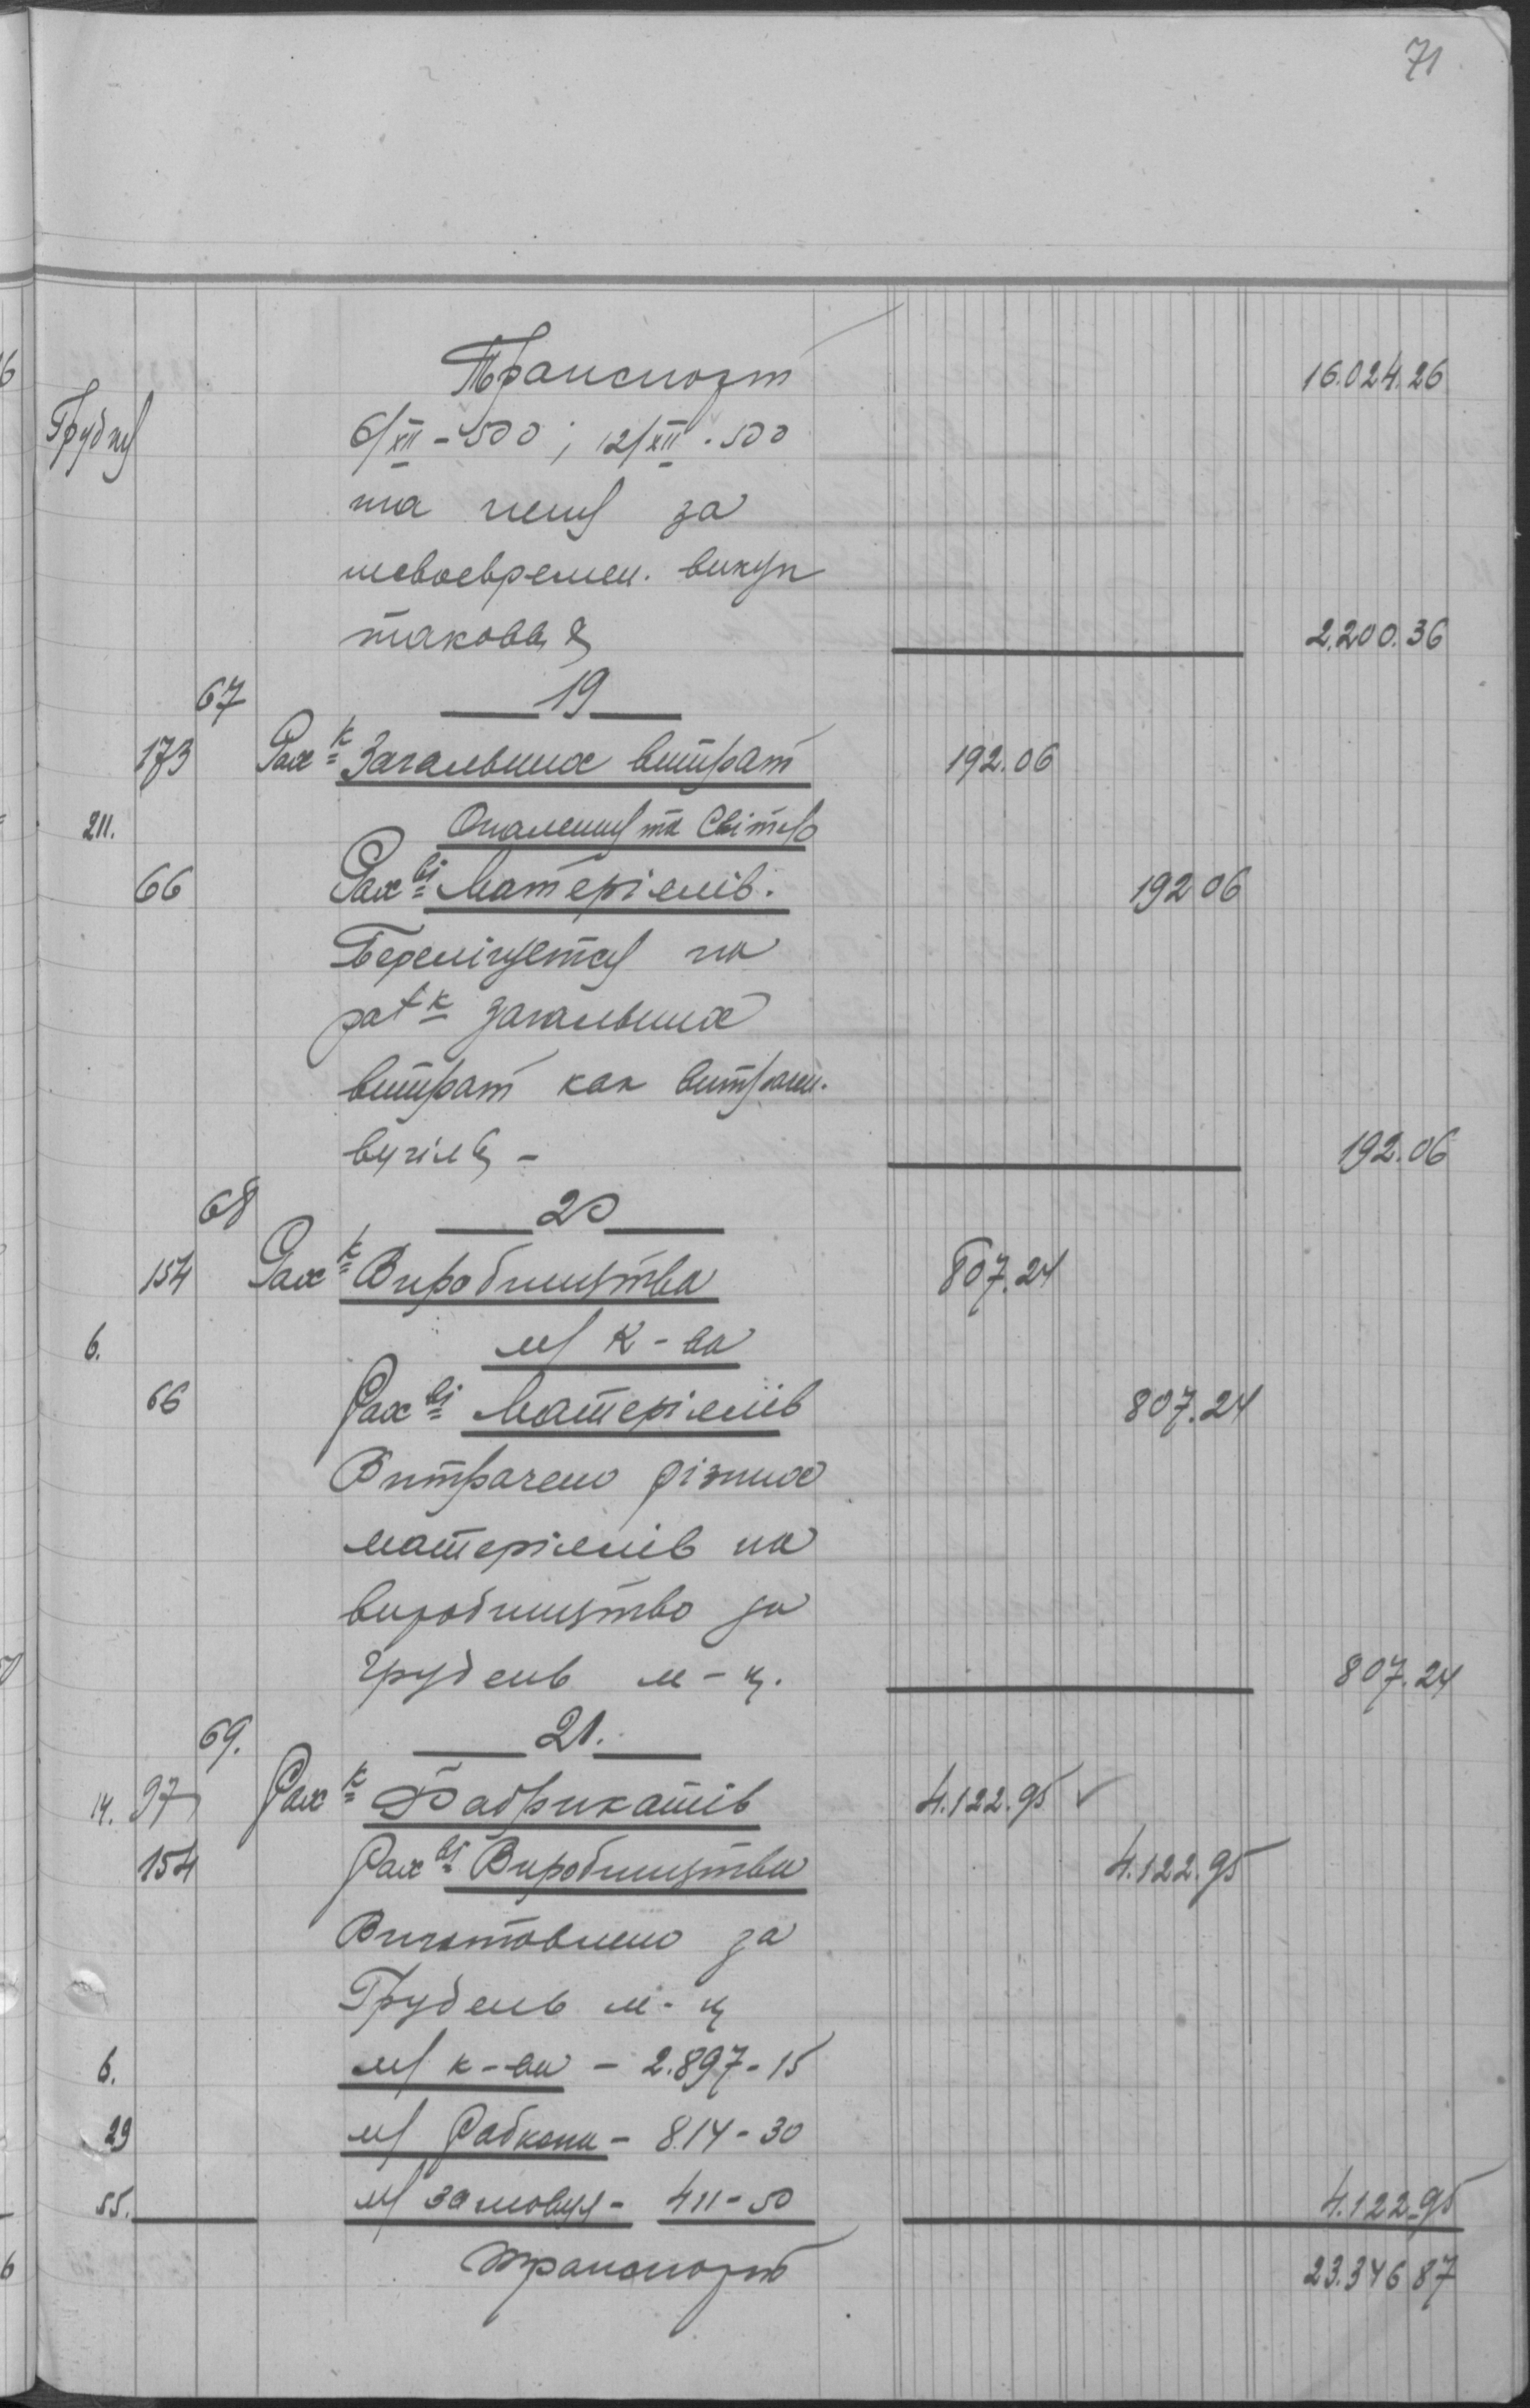 71
Транспорт 16.024.26
Грудня 6/XII - 500 ; 12/XII . 500
та пеня за
несвоевремен. викуп
таковця 2.200.36
67 19
173 Рах к Загальних витрат 192.06
211. Опалення та Світло
66 Рах ві Матеріялів. 192 06
Перелічується на
рах к загальних
витрат как витрачен.
вугілля - 192.06
68 20
154 Рах к Виробництва 807.24
6. м/ К-ва
66 Рах ві Матеріялів 807.24
Витрачено різних
матеріялів на
виробництво за
грудень м-ц. 807.24
69. 21.
14. 97 Рах к Фабрикатів 4.122.95 ✓
154 Рах ві Виробництва 4.122.95
Виготовлено за
Грудень м-ц
6. м/ к-ва - 2.897-15
29 м/ Рабкопа - 814-30
55. м/ замовця - 411-50 4.122-95
Транспорт 23.346 87